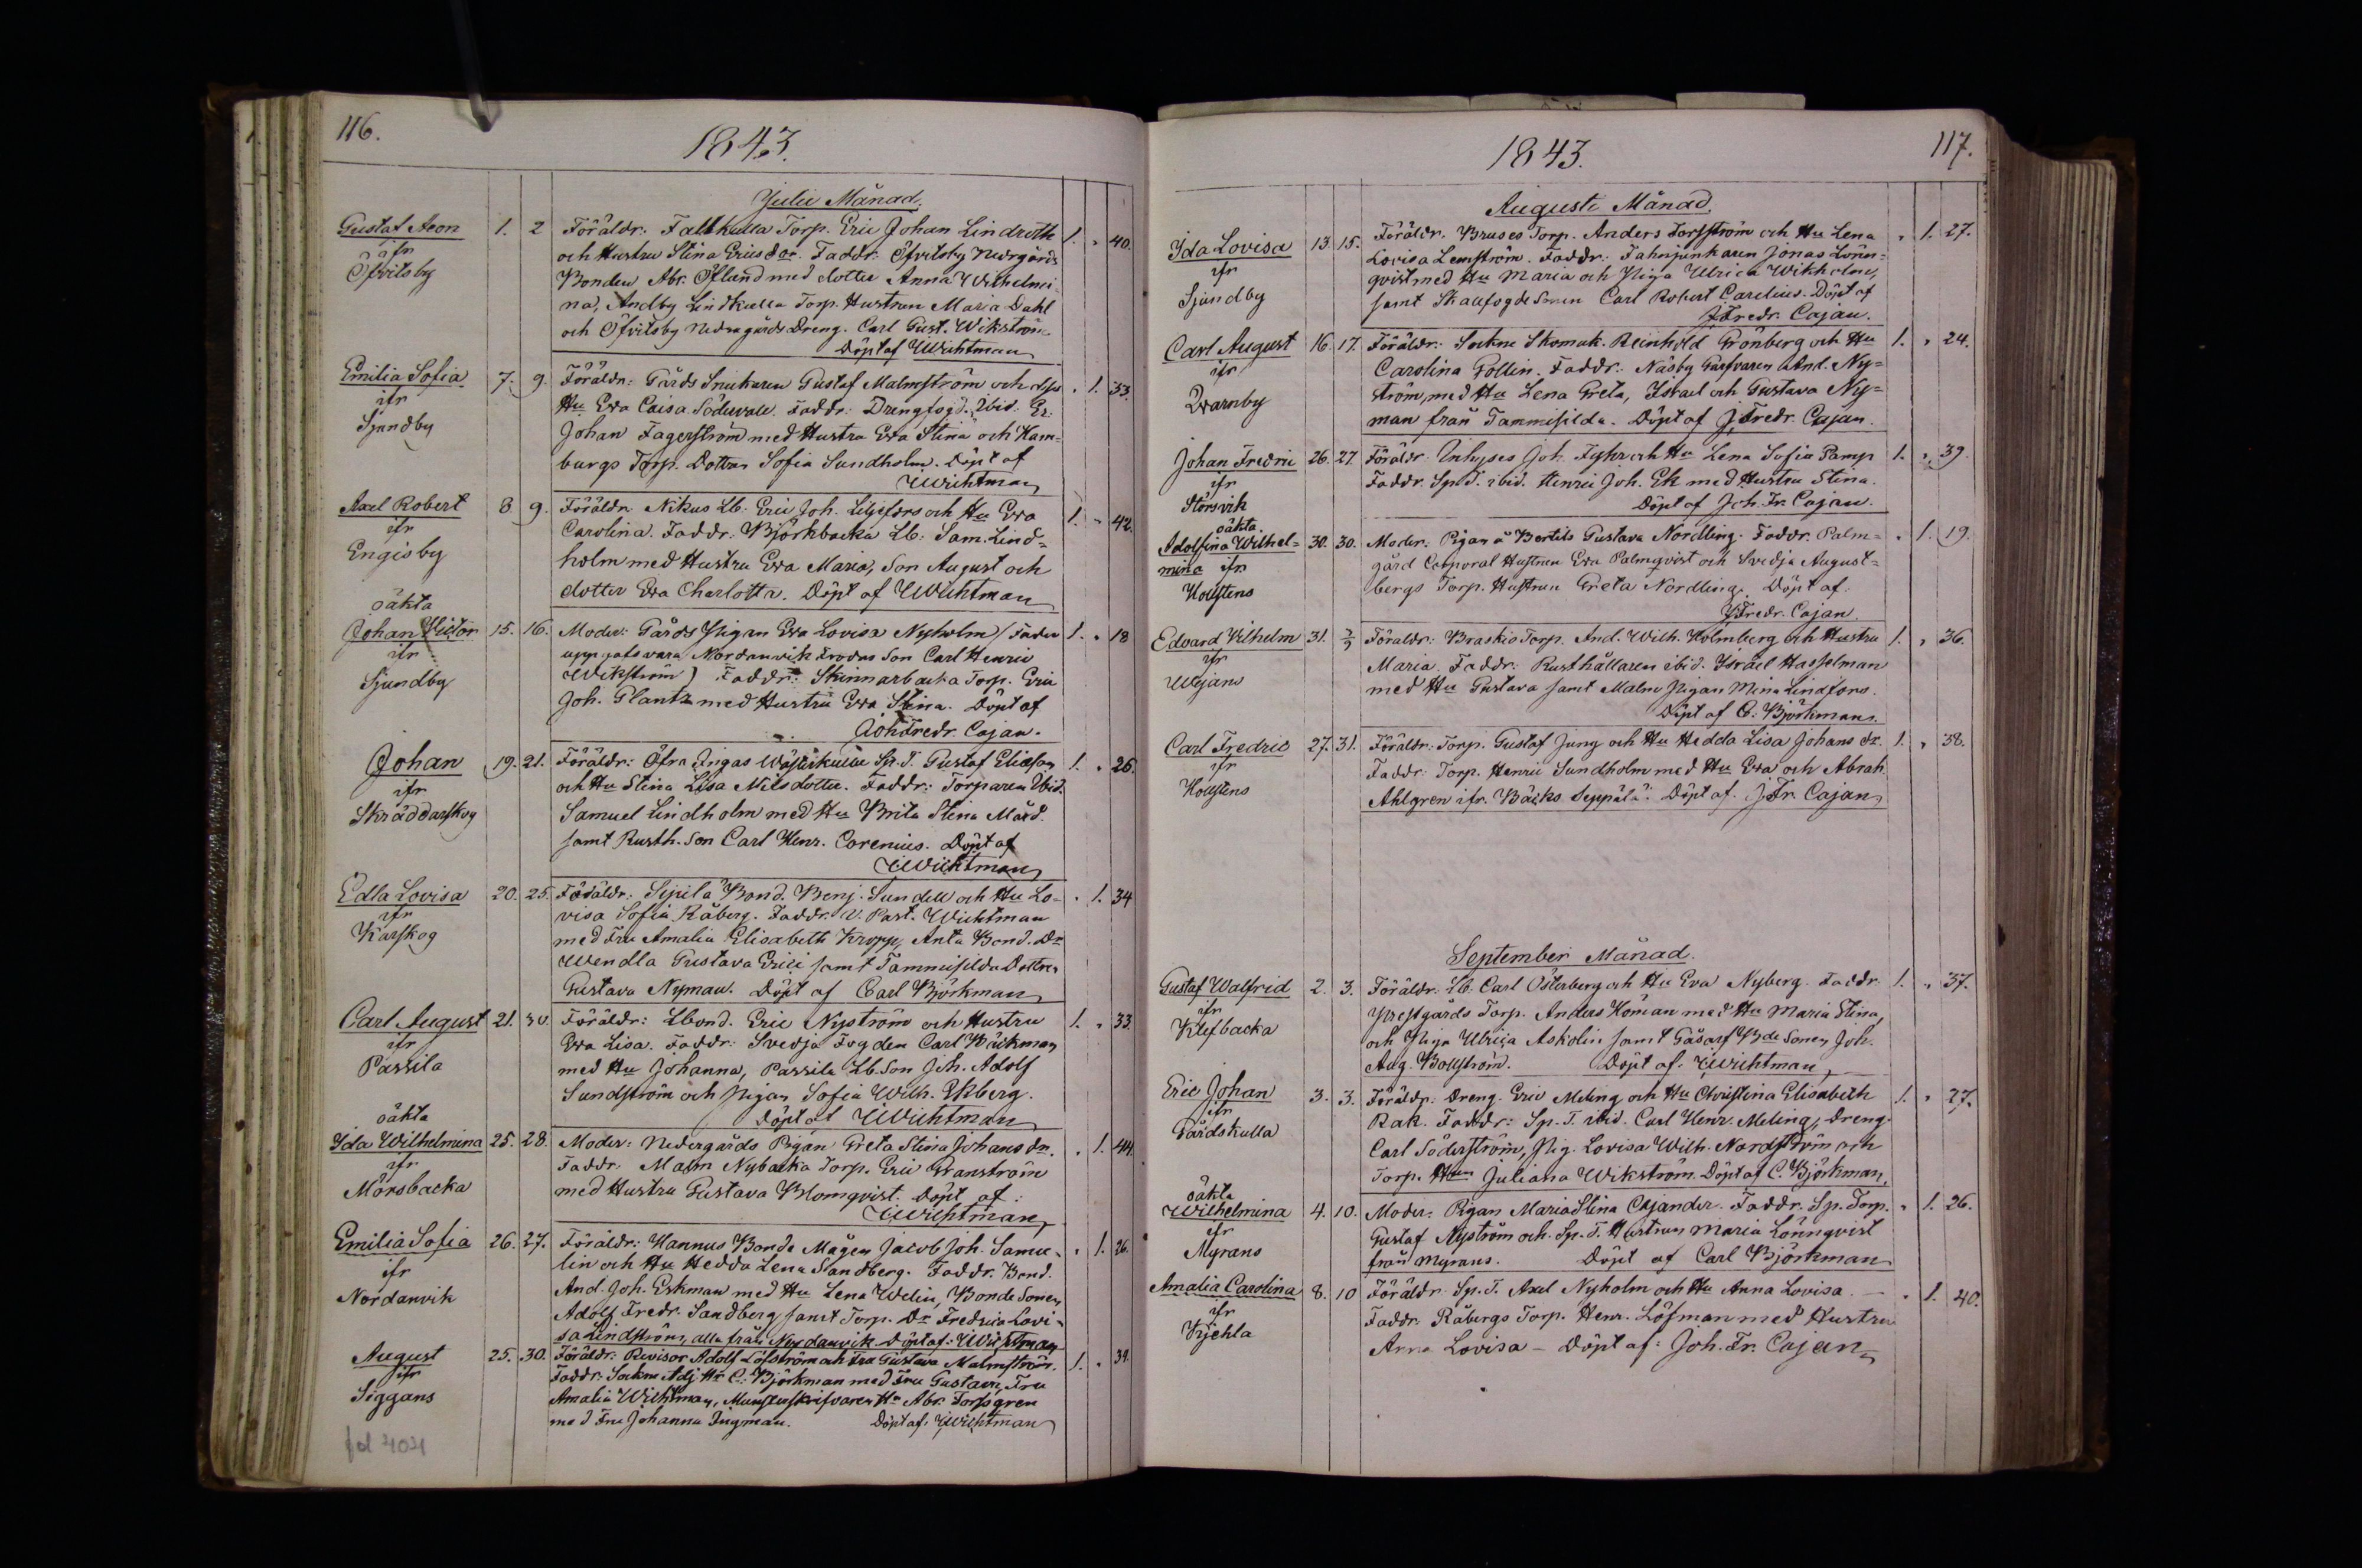 116.
1843.
Julii Månad.
Gustaf Aron 1. 2 Föräldr: Fallkulla Torp. Eric Johan Lindroth 1. " 40.
ifr och Hustru Stina Ericsdor. Faddr: Öfvitsby Nedrgårds
Öfvitsby Bonden Abr. Öfland med dotter Anna Wilhelmi-
na, Andby Lindkulla Torp. Hustrun Maria Dahl
och Öfvitsby Nedragårds Dreng. Carl Gust. Wikström.
Döpt af Wichtman
Emilia Sofia 7. 9. Föräldr: Gårds Snickaren Gustaf Malmström och dess " 1. 33.
ifr Hu Eva Caisa Södervall. Faddr: Drengfogd. ibid. Er.
Sjundby Johan Fagerström med Hustru Eva Stina och Kam-
burgs Torp. Dottren Sofia Sundholm. Döpt af
Wichtman
Axel Robert 8 9. Föräldr. Nikus Lb. Eric Joh. Liljefors och Hu Eva 1. " 42.
ifr Carolina. Faddr: Björkbacka Lb: Sam. Lind-
Engisby holm med Hustru Eva Maria, Son August och
dotter Eva Charlotta. Döpt af Wichtman
oäkta
Johan Victor 15. 16. Moder: Gårds Pigan Eva Lovisa Nyholm (Fader 1. " 18
ifr uppgafs vara Nordanvik Sonen Carl Henric
Sjundby Wikström) Faddr: Skinnarbacka Torp. Eric
Joh. Glantz med Hustru Eva Stina. Döpt af
Joh Fredr. Cajan.
Johan 19. 21. Föräldr: Öfra Ingas Wästerkulla Sp. T. Gustaf Eliasson 1. " 26.
ifr och Hu Stina Lisa Nilsdotter. Faddr: Torparen ibid.
Skräddarskog Samuel Lindholm med Hu Brita Stina Mård
samt Rusth. Son Carl Henr. Corenius. Döpt af
Wichtman
Edla Lovisa 20. 25. Föräldr. Sipilä Bond. Benj. Sundell och Hu Lo- " 1. 34
ifr visa Sofia Råberg. Faddr. V. Past. Wichtman
Karskog med Fru Amalia Elisabeth Kropp, Anta Bond. Dr
Wendla Gustava Erici samt Tammisilda Dottren
Gustava Nyman. Döpt af Carl Björkman
Carl August 21. 30. Föräldr: Lbond. Eric Nyström och Hustru 1. " 33.
ifr Eva Lisa. Faddr: Svedja Fogden Carl Bäckman
Passila med Hu Johanna, Passila Lb. Son Joh. Adolf
Sundström och Pigan Sofia Wilh. Ekberg.
oäkta Döpt af Wichtman
Ida Wilhelmina 25. 28. Moder: Nedergårds Pigan Greta Stina Johansdr. " 1. 44
ifr Faddr. Malm Nybacka Torp. Eric Granström
Mörsbacka med Hustru Gustava Blomqvist. Döpt af:
Wichtman
Emilia Sofia 26. 27. Föräldr: Hannus Bonde Mågen Jacob Joh. Samu- " 1. 26.
ifr lin och Hu Hedda Lena Sandberg. Faddr. Bond.
Nordanvik And. Joh. Eskman med Hu Lena Welin, Bonde Sonen
Adolf Fredr. Sandberg samt Torp. Dr Fredrica Lovi-
sa Lindström, alla från Nordanvik. Döpt af: Wichtman
August 25. 30. Föräldr: Revisor Adolf Löfström och Fru Gustava Malmström. 1. " 39.
ifr Faddr: Sockne Adj. Hr C. Björkman med Fru Gustava, Fru
Siggans Amalia Wichtman, Munsterskrifvaren Hr Abr. Forsgren
med Fru Johanna Ingman. Döpt af: Wichtman
117.
1843.
Augusti Månad.
Ida Lovisa 13 15. Föräldr. Bruses Torp. Anders Forsström och Hu Lena " 1. 27.
ifr Lovisa Lemström. Faddr: Fahnjunkaren Jonas Lönn-
Sjundby qvist med Hu Maria och Piga Ulrica Wikholm,
samt Skallfogde Sonen Carl Robert Carelius. Döpt af
J. Fredr. Cajan.
Carl August 16. 17. Föräldr: Sockne Skomak. Reinhold Grönberg och Hu 1. " 24.
ifr Carolina Gollin. Faddr: Näsby Garfvaren And. Ny-
Qvarnby ström, med Hu Lena Greta, Israel och Gustava Ny-
man från Tammisilda. Döpt af J. Fredr. Cajan.
Johan Fredric 26. 27. Föräldr. Inhyses Joh. Fyhr och Hu Lena Sofia Pamp 1. " 39.
ifr Faddr. Sp. T. ibid. Henric Joh. Ek med Hustru Stina.
Störsvik Döpt af Joh. Fr. Cajan.
oäkta
Adolfina Wilhel- 30. 30. Moder: Pigan å Bertils Gustava Nordling. Faddr. Palm- " 1. 19.
mina ifr gård Corporal Hustrun Eva Palmqvist och Svedja August-
Hollstens bergs Torp. Hustrun Greta Nordling. Döpt af
J. Fredr. Cajan.
Edvard Vilhelm 31. 3/9 Föräldr: Braskis Torp. And. Wilh. Holmberg och Hustru 1. " 36.
ifr Maria. Faddr: Rusthållaren ibid. Israel Hasselman
Wejans med Hu Gustava samt Malm Pigan Mina Lindfors.
Döpt af C. Björkman.
Carl Fredric 27. 31. Föräldr: Torp. Gustaf Jung och Hu Hedda Lisa Johansdr. 1. " 38.
ifr Faddr: Torp. Henric Sundholm med Hu Eva och Abrah.
Hollstens Ahlgren ifr. Bäcks Seppälä. Döpt af: J. Fr. Cajan
September Månad.
Gustaf Walfrid 2. 3. Föräldr: Lb. Carl Österberg och Hu Eva Nyberg. Faddr: 1. " 37.
ifr Prestgårds Torp. Anders Homan med Hu Maria Stina,
Klefbacka och Piga Ulrica Askolin samt Gåsarf Bde Sonen Joh.
Aug. Bollström. Döpt af: Wichtman
Eric Johan 3. 3. Föräldr: Dreng. Eric Meling och Hu Christina Elisabeth 1. " 27.
ifr Rak. Faddr: Sp. T. ibid. Carl Henr. Meling, Dreng.
Gårdskulla Carl Söderström, Pig. Lovisa Wilh. Nordström och
Torp. Hun Juliana Wikström. Döpt af C. Björkman
oäkta
Wilhelmina 4. 10. Moder: Pigan Maria Stina Cajander. Faddr. Sp. Torp. " 1. 26.
ifr Gustaf Nyström och Sp. T. Hustrun Maria Lönnqvist
Myrans från Myrans. Döpt af Carl Björkman
Amalia Carolina 8. 10 Föräldr. Sp. T. Axel Nyholm och Hu Anna Lovisa. " 1. 40.
ifr Faddr. Råbergs Torp. Henr. Löfman med Hustru
Kyehla Anna Lovisa – Döpt af: Joh. Fr. Cajan